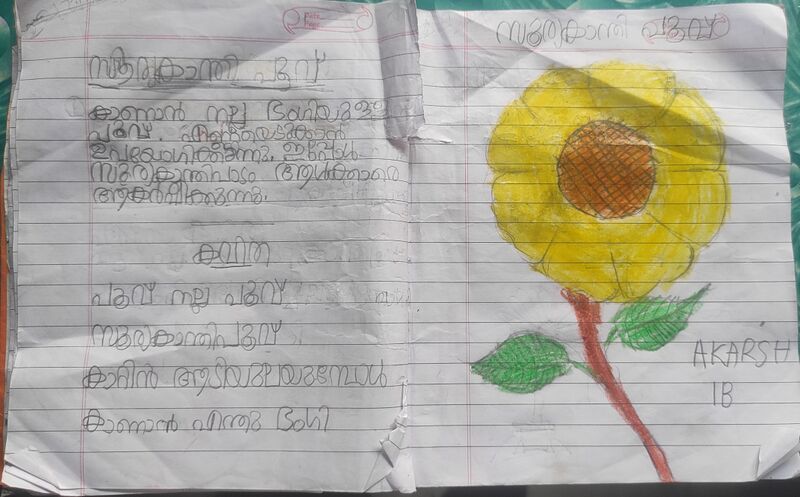 Date
Page
സൂര്യകാന്തി പൂവ്
കാണാൻ നല്ല ഭംഗിയുള്ള
പൂവ്. എണ്ണയെടുക്കാൻ
ഉപയോഗിക്കുന്നു. ഇപ്പോൾ
സൂര്യകാന്തിപാടം ആൾക്കാരെ
ആകർഷിക്കുന്നു.
കവിത
പൂവ് നല്ല പൂവ്
സൂര്യകാന്തിപൂവ്
കാറ്റിൽ ആടിയുലയുമ്പോൾ
കാണാൻ എന്തു ഭംഗി
സൂര്യകാന്തി പൂവ്
AKARSH
1B